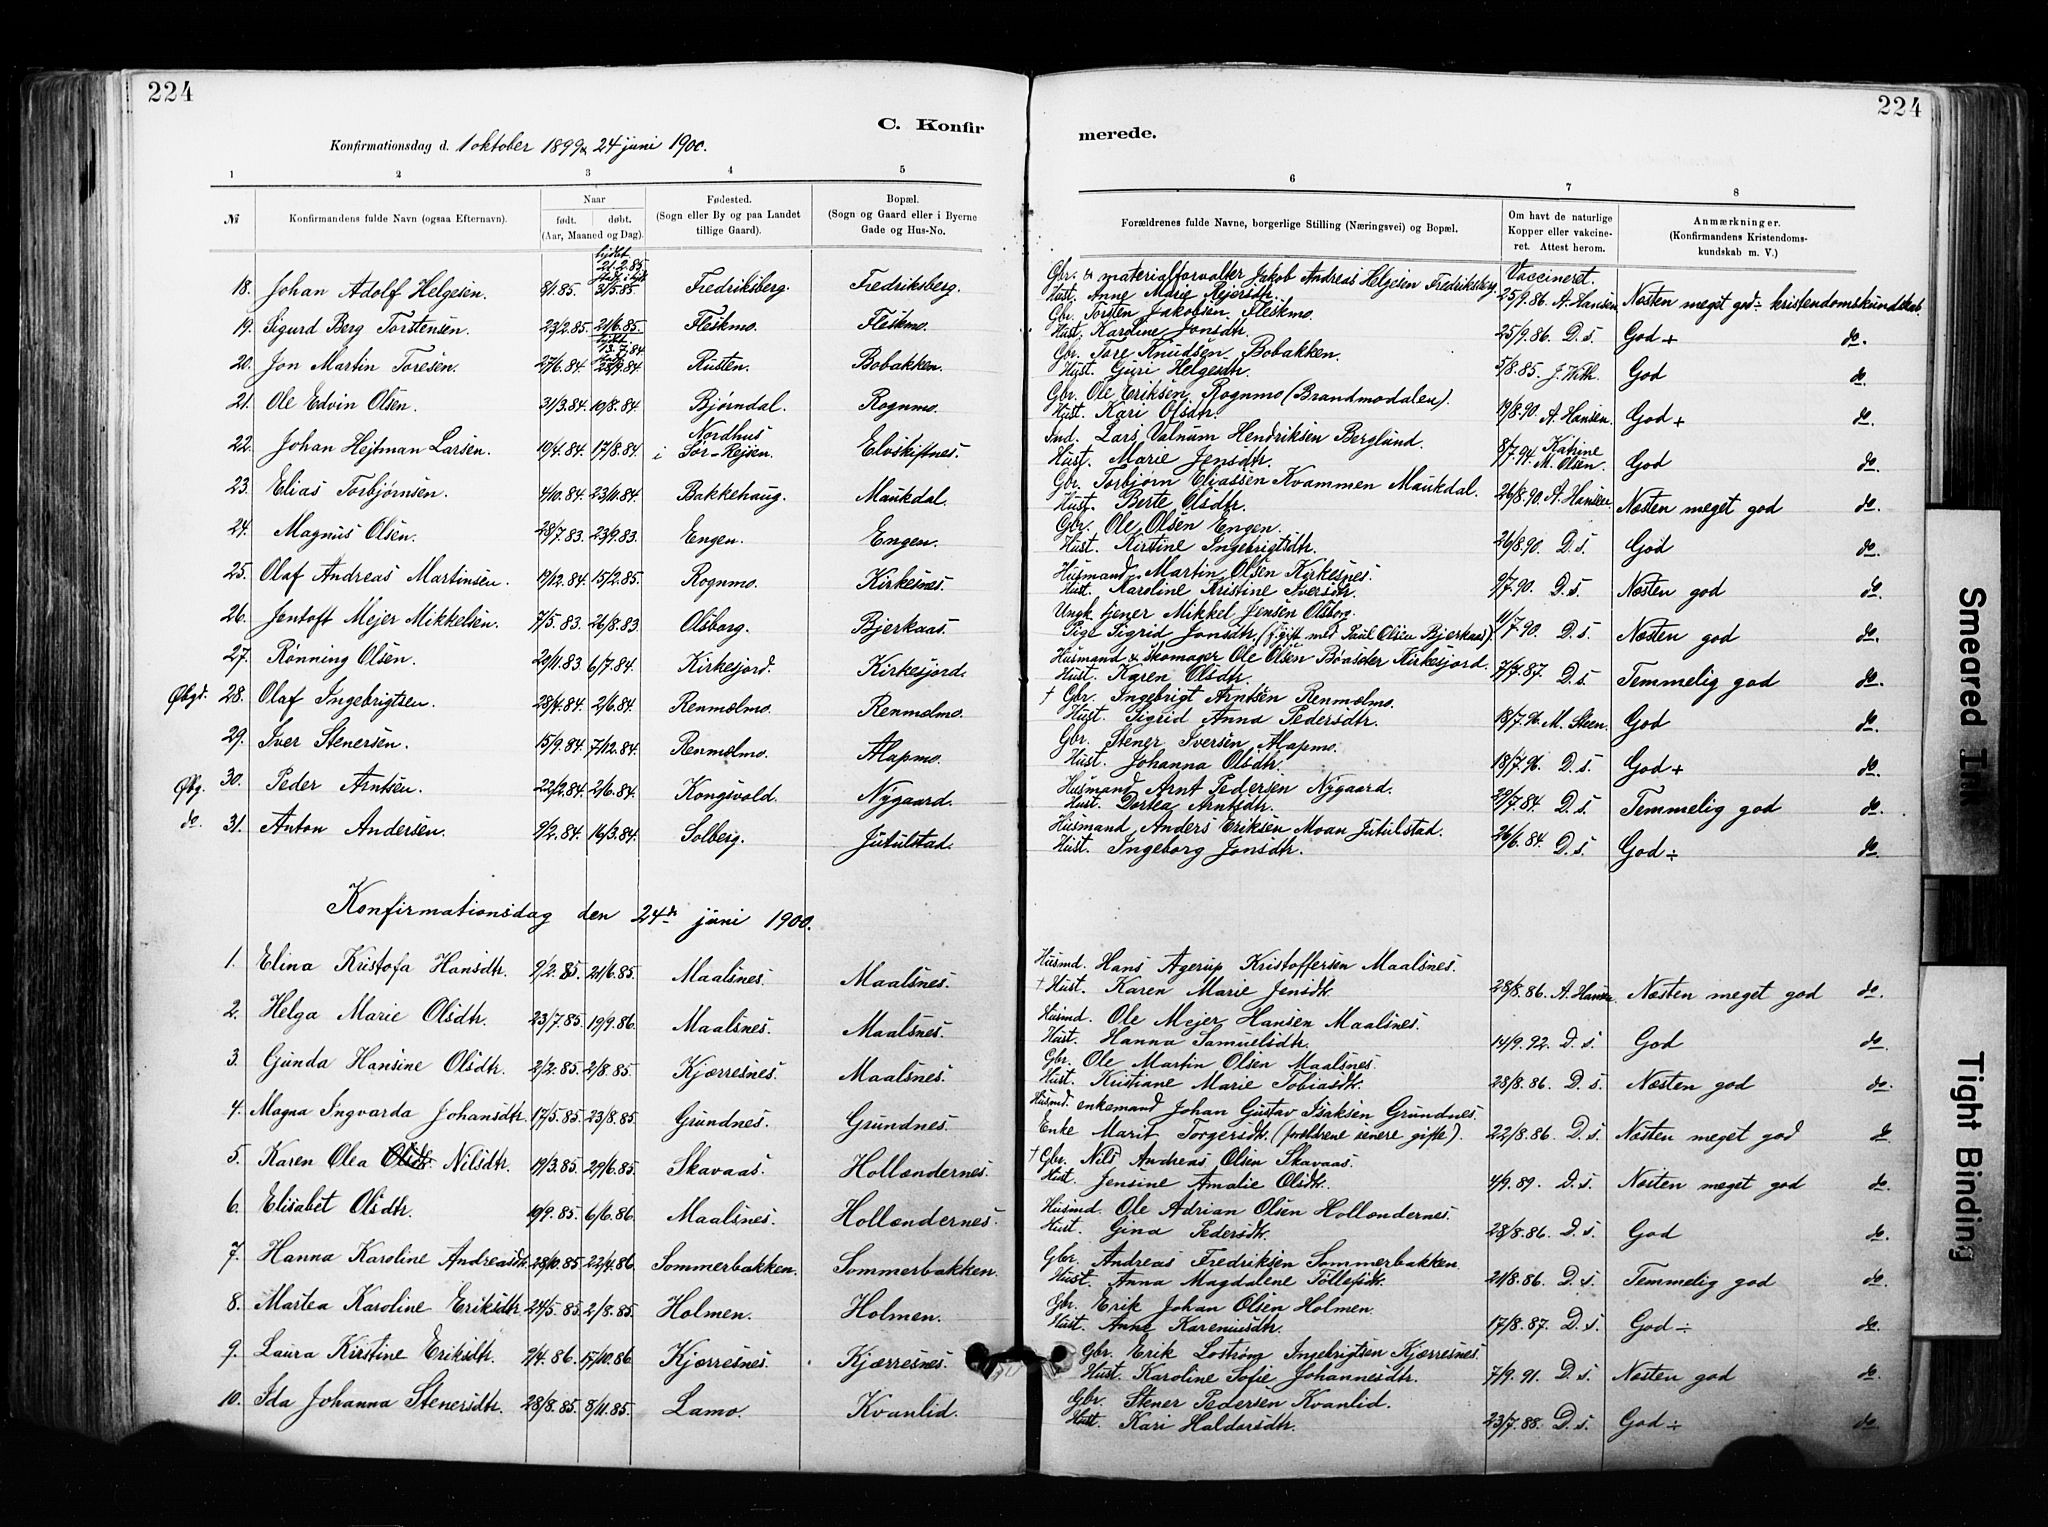 224
224
C. Konfir
merede.
Konfirmationsdag d. 1 oktober 1899 & 24 juni 1900.
1 2 3 4 5 6 7 8
№ Konfirmandens fulde Navn (ogsaa Efternavn). Naar født. døbt. (Aar, Maaned og Dag). Fødested. (Sogn eller By og paa Landet tillige Gaard). Bopæl. (Sogn og Gaard eller i Byerne Gade og Hus-No. Forældrenes fulde Navne, borgerlige Stilling (Næringsvei) og Bopæl. Om havt de naturlige Kopper eller vakcineret. Attest herom. Anmærkninger. (Konfirmandens Kristendomskundskab m. V.)
hjdbt 21-2.85
Vaccineret.
18. Johan Adolf Helgesen. 8/1.85. 3/5.85. Fredriksberg. Fredriksberg. Gbr. & materialforvalter Jakob Andreas Helgesen Fredriksberg.
Hust. Anne Marie Rejersdtr. 25/9.86. A. Hansen Næsten meget god kristendomskundskab.
19. Sigurd Berg Torstensen. 23/2.85 21/6.85. Fleskmo. Fleskmo. Gbr. Torsten Jakobsen Fleskmo.
Hust. Karoline Jonsdtr. 25/9.86. D. s. God + do.
hjdbt 13.7.84
20. Jon Martin Toresen. 27/6.84. 28/9.84 Rusten. Bobakken. Gbr. Tore Knudsen Bobakken.
Hust. Guri Helgesdtr. 5/8.85. J. Kith. God do.
21. Ole Edvin Olsen. 31/3.84. 10/8.84. Bjørndal. Rognmo. Gbr. Ole Eriksen Rognmo (Brandmodalen).
Hust. Kari Olsdtr. 19/8.90. A. Hansen. God + do.
22. Johan Hejtman Larsen. 19/4.84. 17/8.84. Nordhus i Sør-Rejsen. Elvskiftnes. Ind. Lars Valnum Hendriksen Berglund.
Hust. Marie Jensdtr. 8/7.94. Katrine M. Olsen. God do.
23. Elias Torbjørnsen. 4/10.84. 23/11.84. Bakkehaug. Maukdal. Gbr. Torbjørn Eliassen Kvammen Maukdal.
Hust. Berte Olsdtr. 26/8.90. A. Hansen Næsten meget god do.
24. Magnus Olsen. 28/7.83. 23/9.83. Engen. Engen. Gbr. Ole Olsen Engen.
Hust. Kirstine Ingebrigtsdtr. 26/8.90. D. s. God do.
25. Olaf Andreas Martinsen. 17/12.84. 15/2.85. Rognmo. Kirkesnes. Husmand Martin Olsen Kirkesnes.
Hust. Karoline Kristine Iversdtr. 9/7.90. D. s. Næsten god do.
26. Jentoft Mejer Mikkelsen. 7/5.83. 26/8.83. Olsborg. Bjerkaas. Ungk. tjener Mikkel Jensen Olsborg.
Pige Sigrid Jonsdtr. (f. gift med Paul Olsen Bjerkaas). 11/7.90. D. s. Næsten god do.
27. Rønning Olsen. 20/11.83 6/7.84. Kirkesjord. Kirkesjord. Husmand & skomager Ole Olsen Kirkesjord.
Hust. Karen Olsdtr. 7/7.87. D. s. Temmelig god do.
Øbgd. 28. Olaf Ingebrigtsen. 23/4.84. 2/6.84. Renmølmo. Renmølmo. † Gbr. Ingebrigt Arntsen Renmølmo.
Hust. Sigrid Anna Pedersdtr. 18/7.96. M. Steen. God do.
29. Iver Stenersen. 15/9.84. 7/12.84. Renmølmo. Alapmo. Gbr. Stener Iversen Alapmo.
Hust. Johanna Olsdtr. 18/7.96. D. s. God + do.
Øbg. 30. Peder Arntsen. 22/2.84. 2/6.84. Kongsvold. Nygaard. Husmand Arnt Pedersen Nygaard.
Hust. Dortea Arntsdtr. 23/7.84. D. s. Temmelig god do.
do. 31. Anton Andersen. 9/2.84. 16/3.84. Solberg. Jutulstad. Husmand Anders Eriksen Moan Jutulstad.
Hust. Ingeborg Jonsdtr. 26/6.84. D. s. God ÷ do.
Konfirmationsdag den 24de juni 1900.
1. Elina Kristofa Hansdtr. 9/2.85. 21/6.85. Maalsnes. Maalsnes. Husmd. Hans Agerup Kristoffersen Maalsnes.
† Hust. Karen Marie Jensdtr. 28/8.86. A. Hansen Næsten meget god do.
2. Helga Marie Olsdtr. 23/7.85. 19/9.86. Maalsnes. Maalsnes. Husmd. Ole Mejer Hansen Maalsnes.
Hust. Hanna Samuelsdtr. 14/9.92. D. s. God do.
3. Gunda Hansine Olsdtr. 2/2.85. 2/8.85. Kjærresnes. Maalsnes. Gbr. Ole Martin Olsen Maalsnes.
Hust. Kristiane Marie Tobiasdtr. 28/8.86. D. s. Næsten god do.
4. Magna Ingvarda Johansdtr. 17/5.85. 23/8.85. Grundnes. Grundnes. Husmd. enkemand Johan Gustav Isaksen Grundnes.
Enke Marit Torgersdtr. (forældrene senere gifte). 22/8.86. D. s. Næsten meget god do
5. Karen Olea Olsdtr. Nilsdtr. 19/3.85. 29/6.85. Skavaas. Hollændernes. † Gbr. Nils Andreas Olsen Skavaas.
Hust. Jensine Amalie Olsdtr. 4/9.89. D. s. Næsten meget god do.
6. Elisabet Olsdtr. 19/9.85. 6/6.86. Maalsnes. Hollændernes. Husmd Ole Adrian Olsen Hollændernes.
Hust. Gina Pedersdtr. 28/8.86. D. s. God do.
7. Hanna Karoline Andreasdtr. 28/10.85. 22/4.86. Sommerbakken. Sommerbakken. Gbr. Andreas Fredriksen Sommerbakken.
Hust. Anna Magdalene Tollefsdtr. 21/8.86. D. s. Temmelig god do.
8. Martea Karoline Eriksdtr. 24/5.85. 2/8.85. Holmen. Holmen. Gbr. Erik Johan Olsen Holmen.
Hust. Anne Kareniusdtr. 17/8.87. D. s. God ÷ do.
9. Laura Kirstine Eriksdtr. 9/4.86. 17/10.86. Kjærresnes. Kjærresnes. Gbr. Erik Lostrøm Ingebrigtsen Kjærresnes.
Hust. Karoline Sofie Johannesdtr. 7/9.91. D. s. Næsten god do.
10. Ida Johanna Stenersdtr. 28/8.85. 8/11.85. Lamo. Kvanlid. Gbr. Stener Pedersen Kvanlid.
Hust. Kari Haldorsdtr. 23/7.88. D. s. God ÷ do.
Smeared Ink
Tight Binding